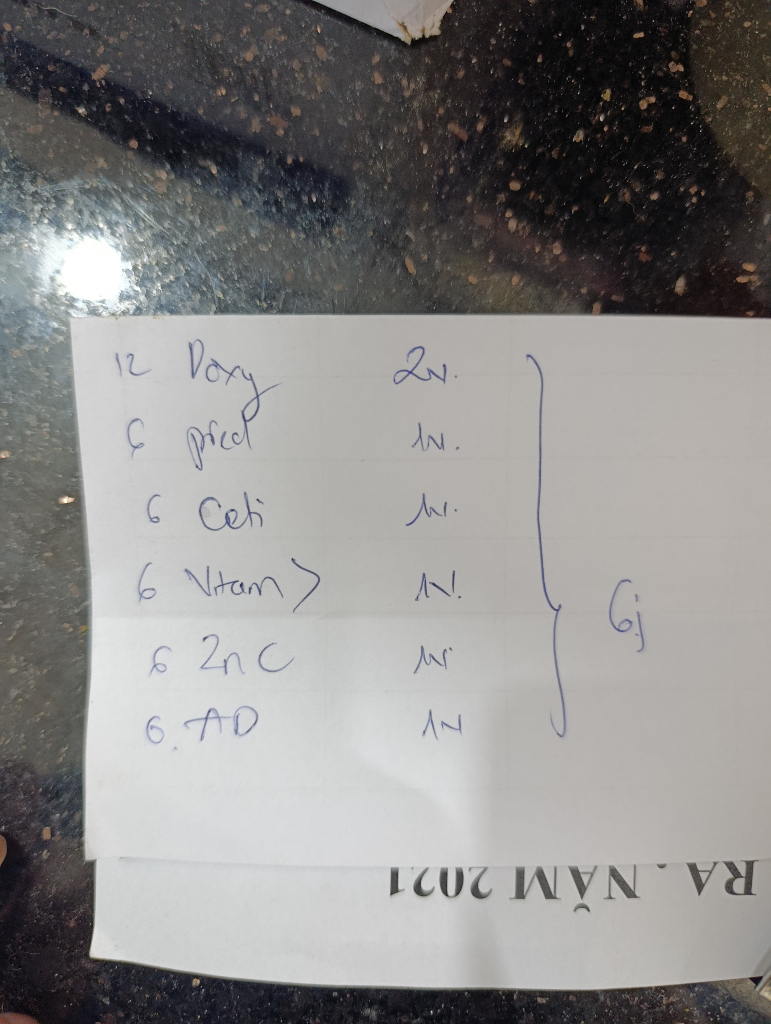 12 Doxy 2v.
6 pred 1v.
6 Ceti 1v.
6 Vitam > 1v.
6 Zn C 1v
6. AD 1v
6j
RA. NĂM 2021